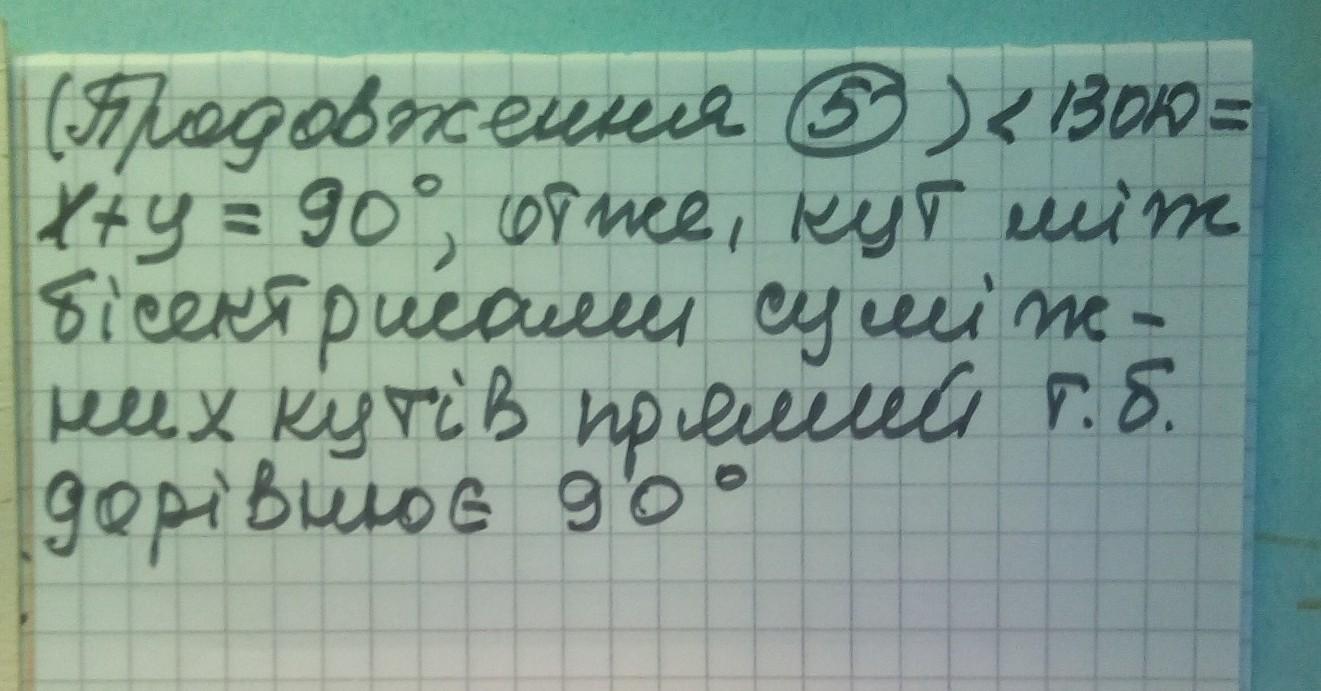 (Продовження ⑤) < ВОЮ =
x + y = 90°, отже, кут між
бісектрисами суміж-
них кутів прямий т.б.
дорівнює 90°